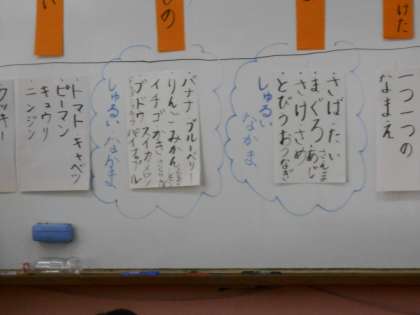 けた
の
い
一つ一つの
なまえ
・さば・たい
・まぐろ・あじ
・さけ・さめ
・とびうお
うなぎ
しゅるい
なかま
バナナ ブルーベリー
りんご みかん
イチゴ かき
ブドウ スイカ
パイナップル
しゅるい
なかま
・トマト キャベツ
・ピーマン
・キュウリ
・ニンジン
クッキー